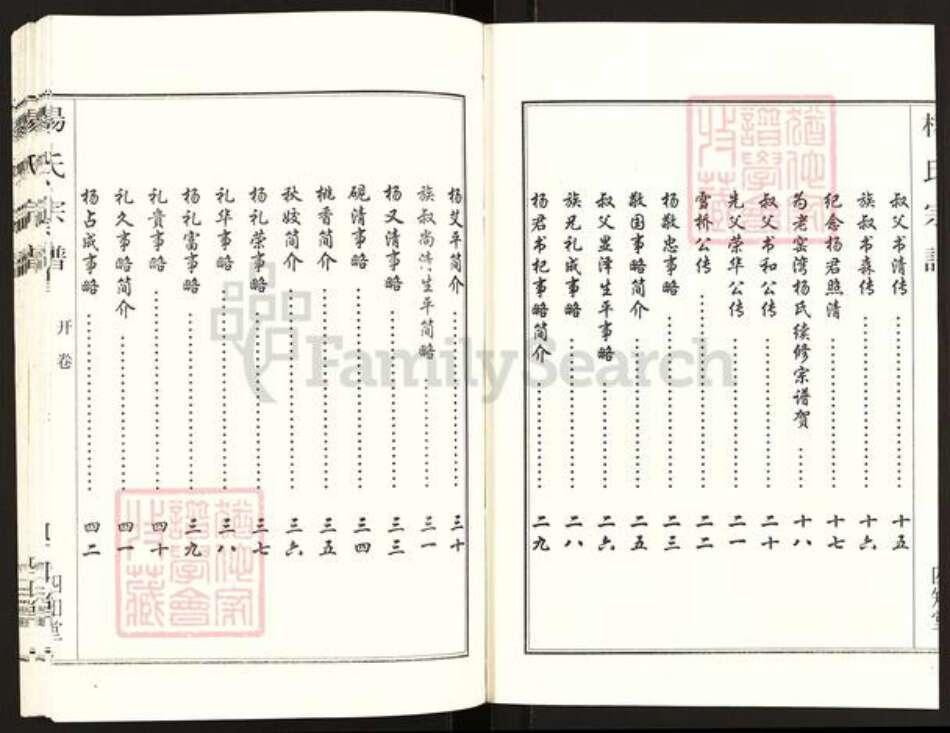 杨氏宗谱
叔父书清传 十五
族叔书森传 十六
纪念杨君照清 十七
为老窑湾杨氏续修宗谱贺 十八
叔父书和公传 二十
先父荣华公传 二一
雪桥公传 二二
杨敬忠事略 二三
敬国事略简介 二五
叔父显泽生平事略 二六
族兄礼成事略 二八
杨君书杞事略简介 二九
杨艾平简介 三十
族叔尚清生平简略 三一
杨又清事略 三三
砚清事略 三四
桃香简介 三五
秋姣简介 三六
杨礼荣事略 三七
礼华事略 三八
杨礼富事略 三九
礼贵事略 四十
礼久事略简介 四一
杨占成事略 四二
杨氏宗谱
开卷
四知堂
猶他家譜學會收藏
猶他家譜學會收藏
FamilySearch